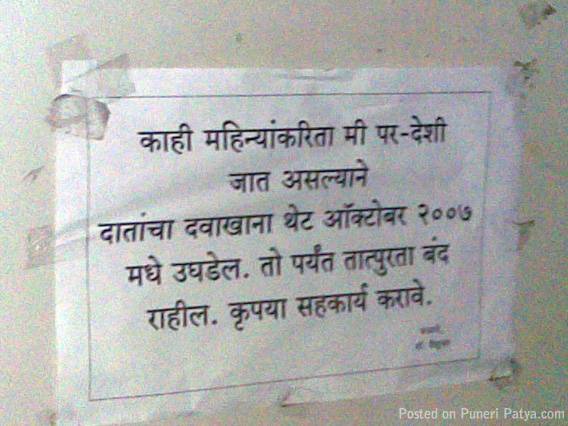 काही महिन्यांकरिता मी पर-देशी
जात असल्याने
दातांचा दवाखाना थेट ऑक्टोबर २००७
मधे उघडेल. तो पर्यंत तात्पुरता बंद
राहील. कृपया सहकार्य करावे.
Posted on Puneri Patya.com